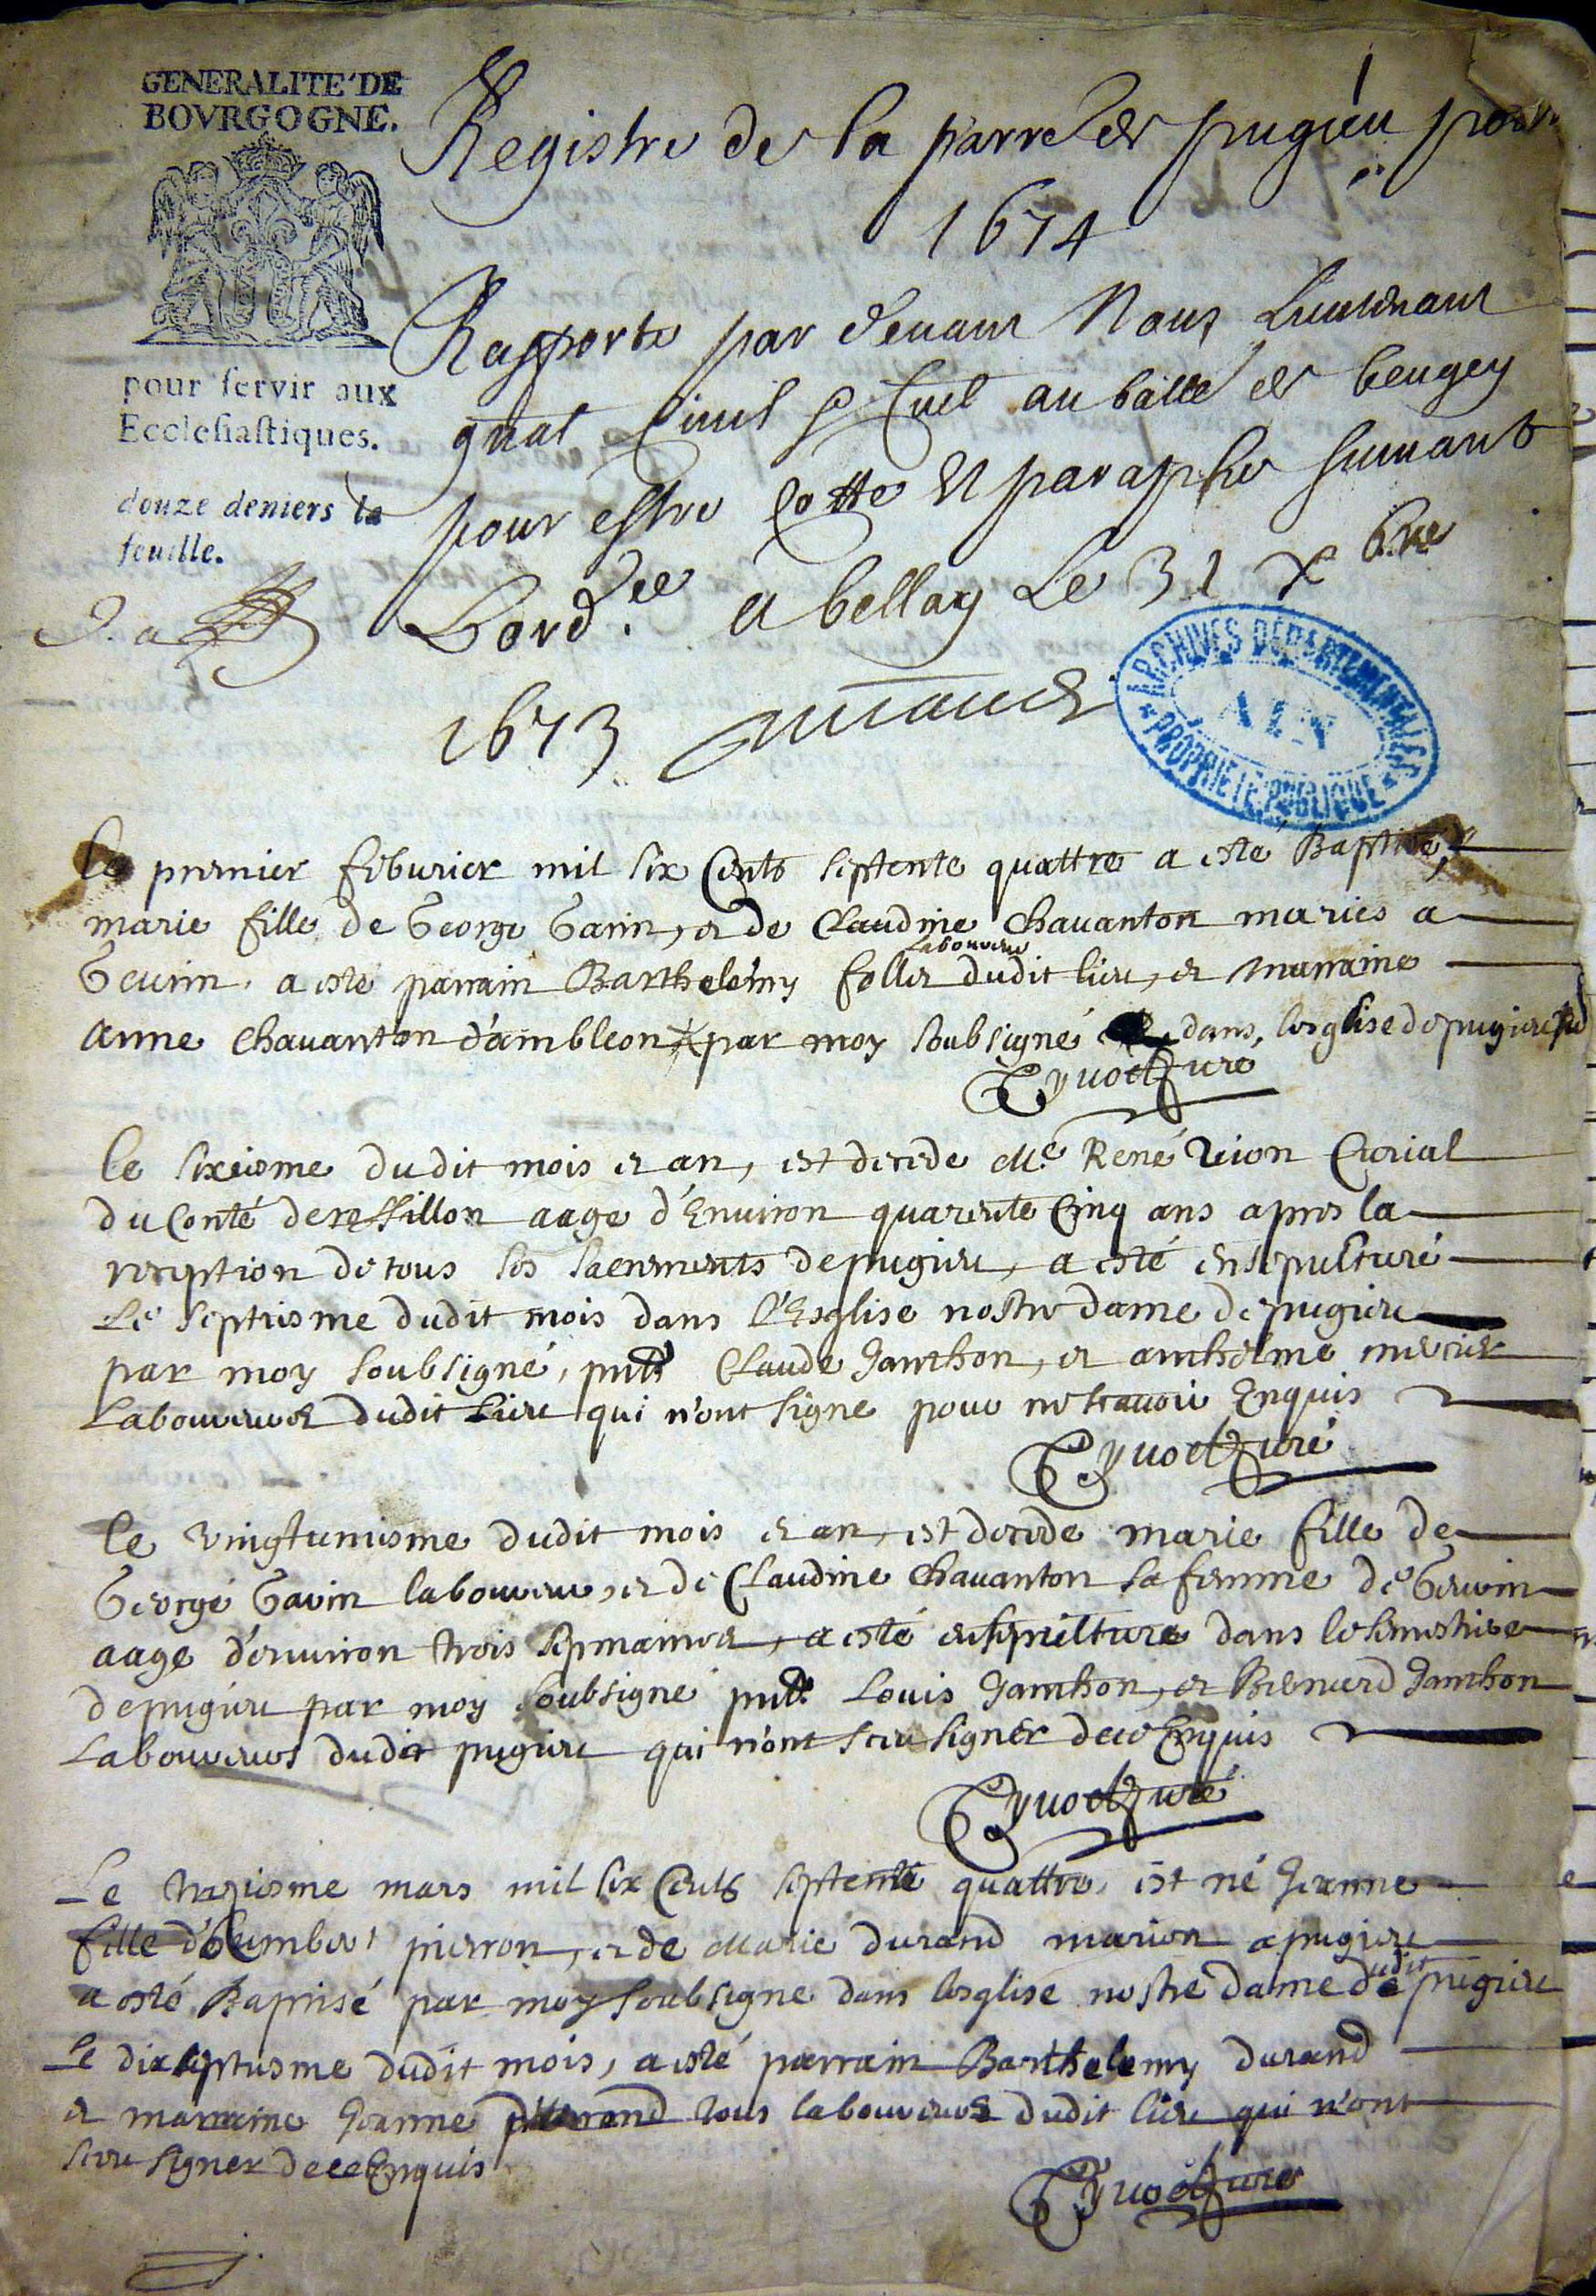 GENERALITE' DE
BOVRGOGNE.
pour servir aux
Ecclesiastiques.
douze deniers la
feuille.
Registre de la parre de pugieu pour
1674
Rapporte par devant Nous Lieutenant
gnal Civil au baille de beugey
pour estre cotte et paraphe suivant
Lord.ce a bellay Le 31 xbre
1673
ARCHIVES DÉPARTEMENTALES
AIN
PROPRIÉTÉ PUBLIQUE
le premier feburier mil six Cents septente quattre a esté Baptisé
marie fille de George Garin, et de Claudine Chauanton mariés a
Laboureur
Geurin, a esté parrain Barthelémy follet dudit lieu, et marraine
Anne Chauanton d'ambleon par moy soubsigné dans lesglise de pugieu
Curé
le sixiesme dudit mois et an, est decede Me René
du Conté de aage d'Enuiron quarente Cinq ans apres la
reception de tous les sacrements de pugieu, a esté ensepulturé
Le septiesme dudit mois dans l'Esglise nostre dame de pugieu
par moy soubsigné, pnts Claude Janthon, et anthelme mercier
Laboureurs dudit Lieu qui n'ont signe pour ne scauoir Enquis
Curé
le vingtuniesme dudit mois et an, est decede marie fille de
George Garin laboureur, et de Claudine Chauanton sa femme de Geurin
aage d'enuiron trois sepmaines, a esté ensepulture dans le simistiere
de pugieu par moy soubsigné pnts Louis Janthon, et Bernerd Janthon
Laboureurs dudit pugieu qui n'ont sceu signer de ce Enquis
Curé
Le treziesme mars mil six Cents septente quattre, est né Jeanne
fille d'humbert pierron, et de Marie durand mariés a pugieu
a esté Baptisé par moy soubsigne dans lesglise nostre dame dudit pugieu
le dixseptiesme dudit mois, a esté parrain Barthelemy durand
et marraine Jeanne tous laboureurs dudit lieu qui n'ont
sceu signer de ce Enquis
Curé